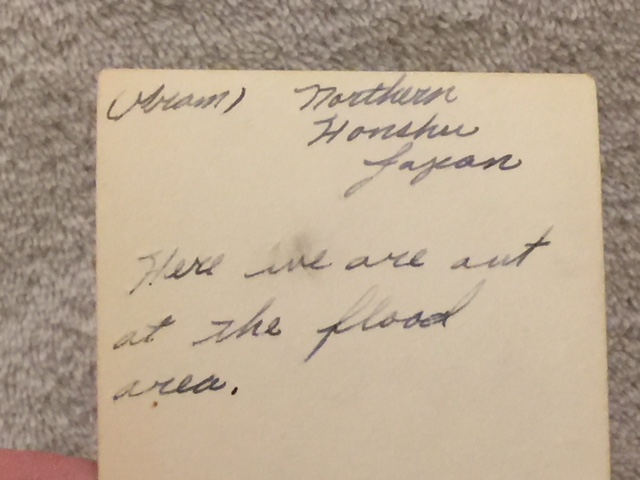 (Abram) Northern
Honshu
Japan
Here we are out
at the flood
area.